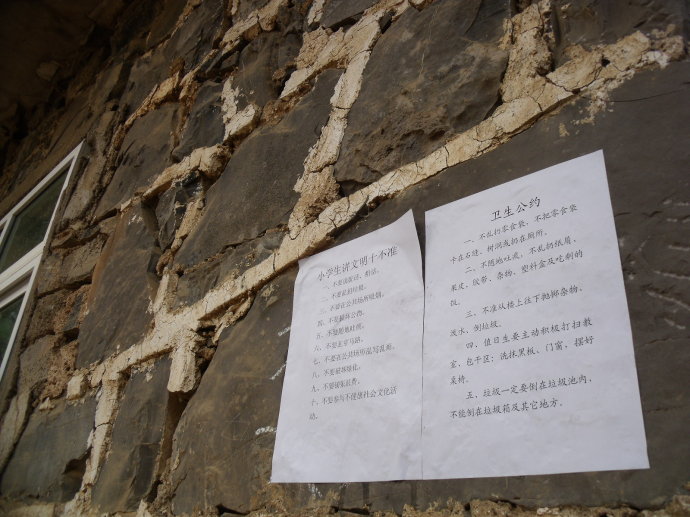 小学生讲文明十不准
一、不要讲脏话、粗话。
二、不要乱扔垃圾。
三、不要在公共场所吸烟。
四、不要破坏公物。
五、不要随地吐痰。
六、不要乱穿马路。
七、不要在公共场所乱写乱画。
八、不要破坏绿化。
九、不要铺张浪费。
十、不要参与不健康社会文化活
动。
卫生公约
一、不乱扔零食袋，不把零食袋
卡在石缝、树洞或扔在厕所。
二、不随地吐痰，不乱扔纸屑、
果皮、胶带、杂物、塑料盒及吃剩的
饭。
三、不准从楼上往下抛掷杂物、
泼水、倒垃圾。
四、值日生要主动积极打扫教
室、包干区；洗抹黑板、门窗，摆好
桌椅。
五、垃圾一定要倒在垃圾池内，
不能倒在垃圾箱及其它地方。